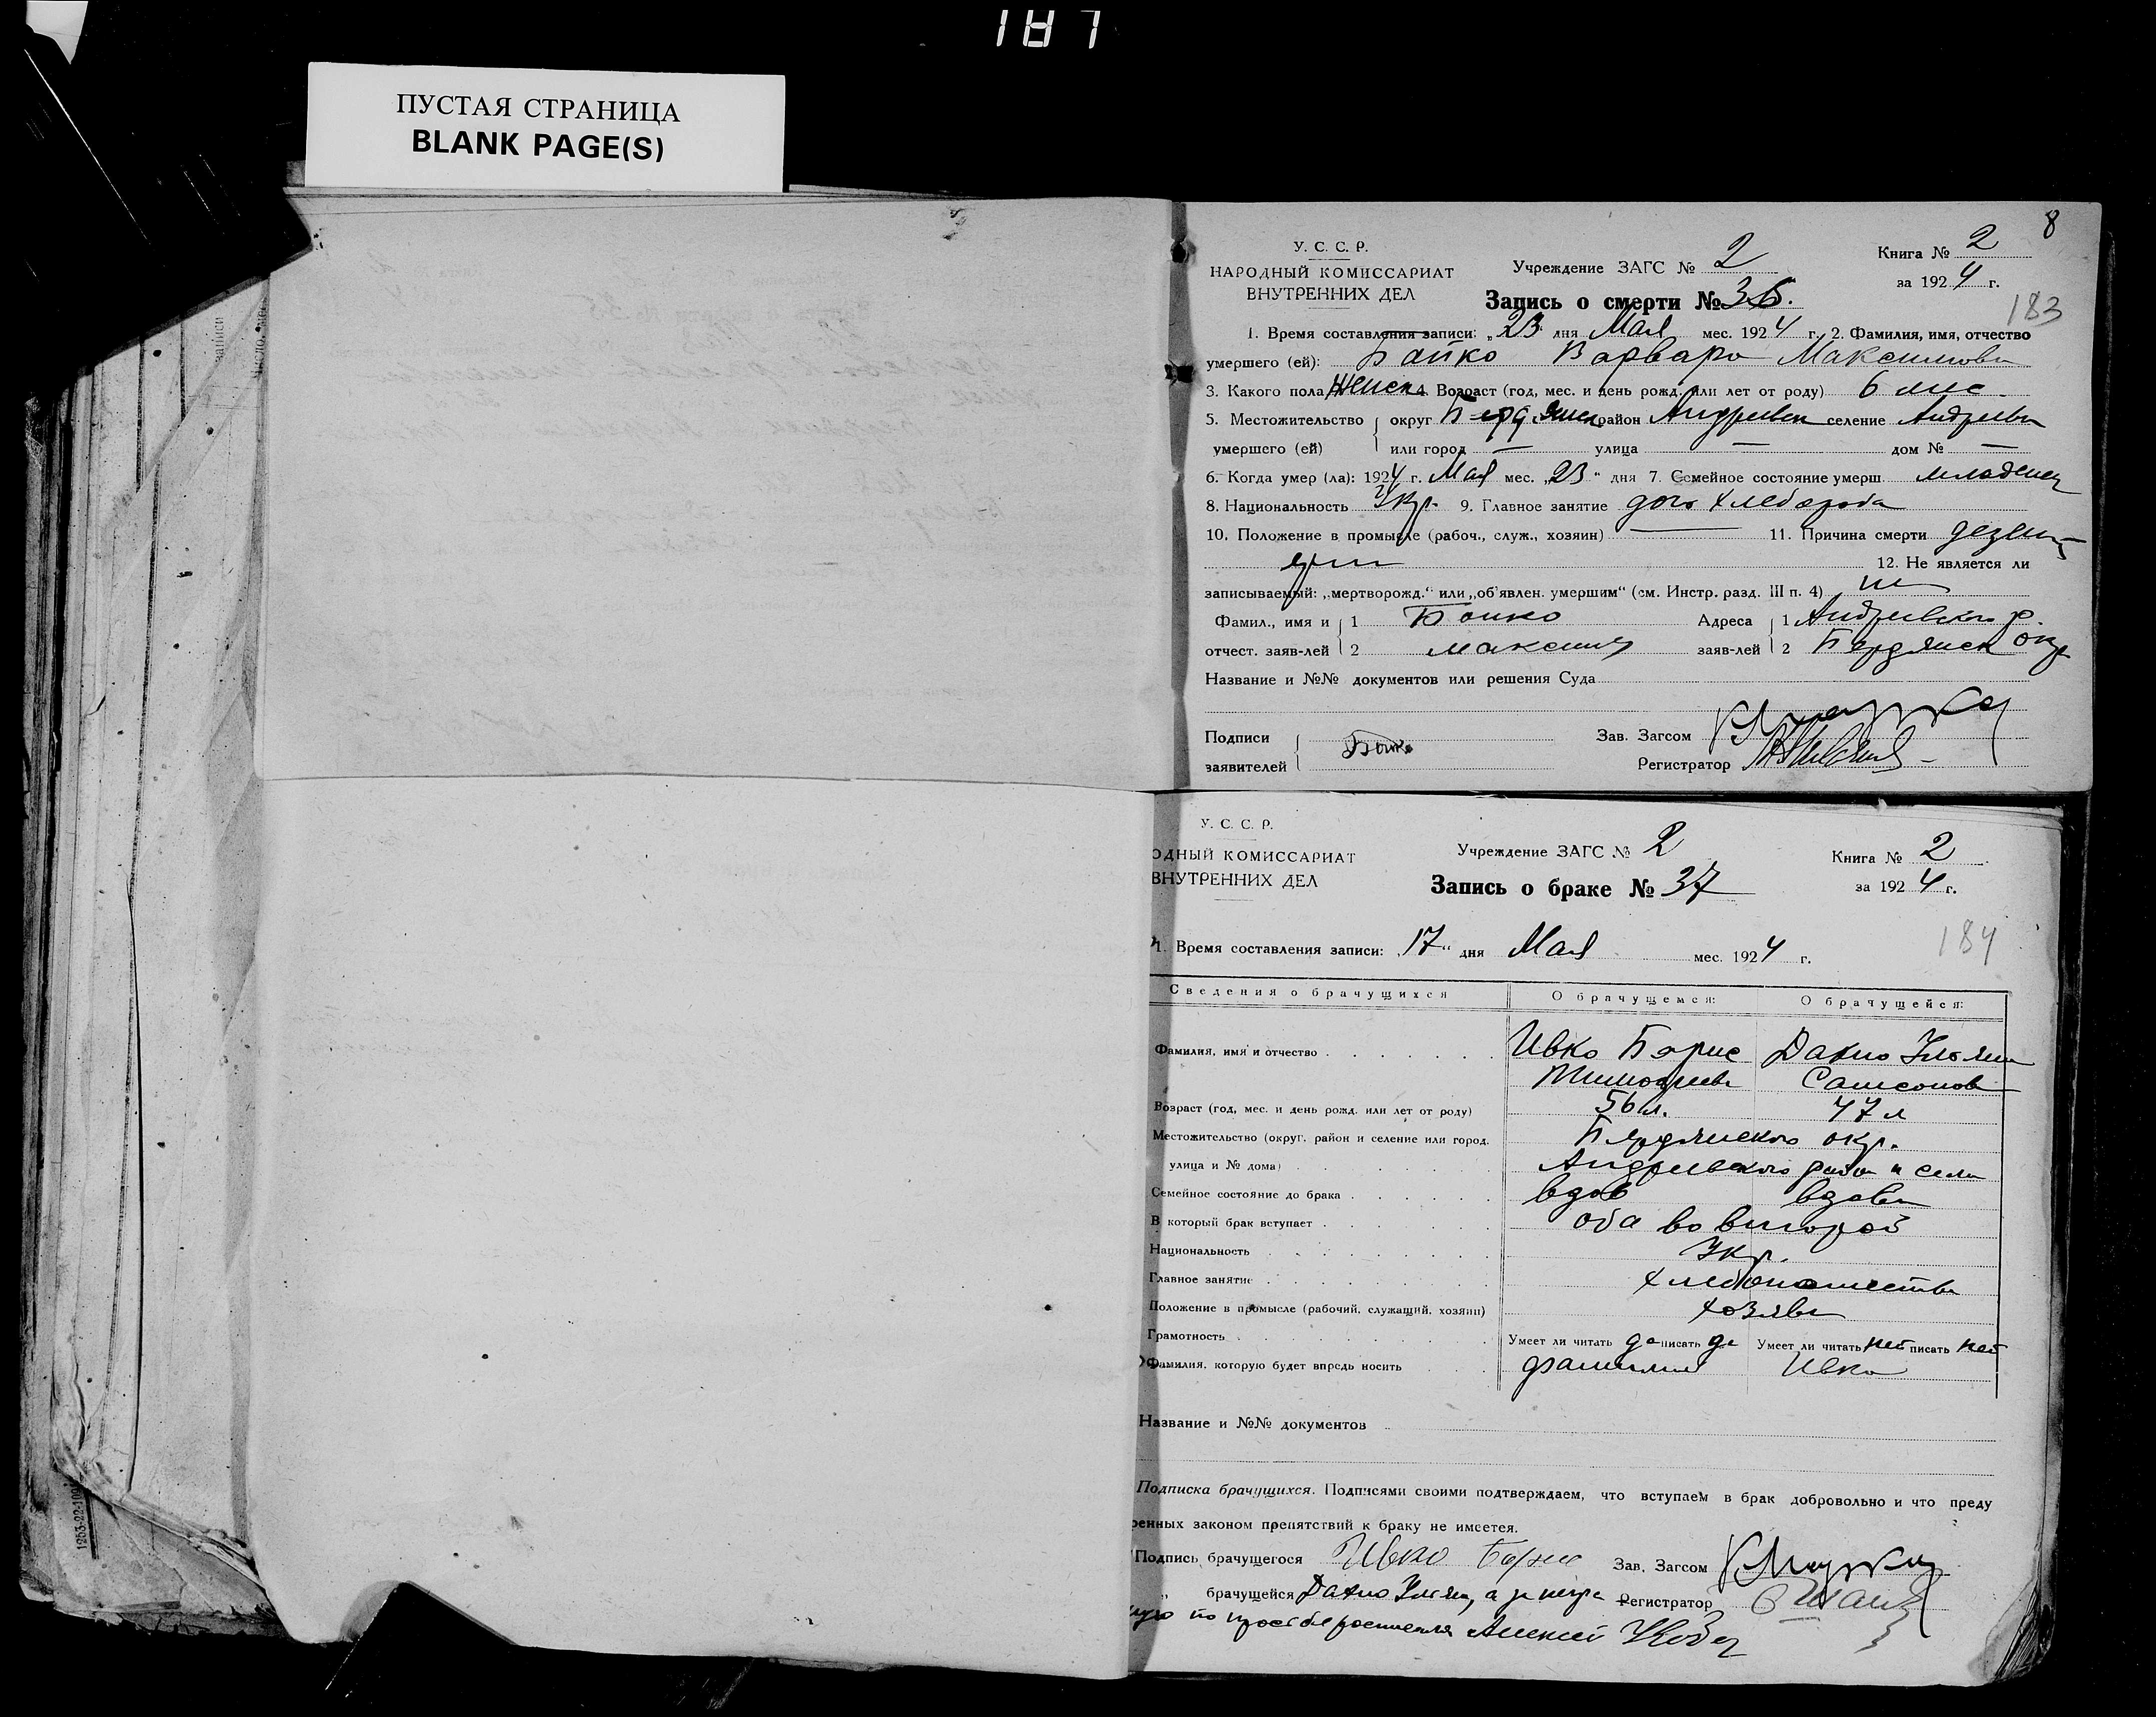 187
ПУСТАЯ СТРАНИЦА
BLANK PAGE(S)
8
У. С. С. Р.
НАРОДНЫЙ КОМИССАРИАТ
ВНУТРЕННИХ ДЕЛ
Учреждение ЗАГС № 2
Запись о смерти № 36.
Книга № 2
за 1924 г.
183
1. Время составления записи: „23" дня Мая мес. 1924 г. 2. Фамилия, имя, отчество
умершего (ей): Бойко Варвара Максимовн
3. Какого пола Женск 4. Возраст (год, мес. и день рожд. или лет от роду) 6 мес.
5. Местожительство округ Бердянск район Андреевск селение Андреевк
умершего (ей) или город — улица — дом № —
6. Когда умер (ла): 1924 г. Мая мес. „23" дня 7. Семейное состояние умерш. младенец
8. Национальность Укр. 9. Главное занятие дочь хлебороба
10. Положение в промысле (рабоч., служ., хозяин) — 11. Причина смерти дезинт
ерии 12. Не является ли
записываемый: „мертворожд." или „об'явлен. умершим" (см. Инстр. разд. III п. 4)
Фамил., имя и 1 Бойко Адреса 1 Андреевского р.
отчест. заяв-лей 2 Максим заяв-лей 2 Бердянск окр
Название и №№ документов или решения Суда
Подписи Бойко Зав. Загсом
заявителей Регистратор
У. С. С. Р.
ОДНЫЙ КОМИССАРИАТ
ВНУТРЕННИХ ДЕЛ
Учреждение ЗАГС № 2
Запись о браке № 37
Книга № 2
за 1924 г.
184
1. Время составления записи: „17" дня Мая мес. 1924 г.
Сведения о брачущихся О брачущемся: О брачущейся:
Фамилия, имя и отчество Ивко Борис Дахно Ульяна
Тимофеев Самсонов
Возраст (год, мес. и день рожд. или лет от роду) 56 л. 47 л
Местожительство (округ, район и селение или город, Бердянского окр.
улица и № дома) Андреевского района и села
Семейное состояние до брака вдов вдова
В который брак вступает оба во второй
Национальность Укр.
Главное занятие хлебопашество
Положение в промысле (рабочий, служащий, хозяин) хозяева
Грамотность Умеет ли читать да писать да Умеет ли читать нет писать нет
Фамилия, которую будет впредь носить фамилия Ивко
Название и №№ документов
Подписка брачущихся. Подписями своими подтверждаем, что вступаем в брак добровольно и что преду
ренных законом препятствий к браку не имеется.
Подпись брачущегося Ивко Борис Зав. Загсом
„ брачущейся Дахно Ульяна, а за негра Регистратор
ную по просьбе росписался Алексей
1253-22-100